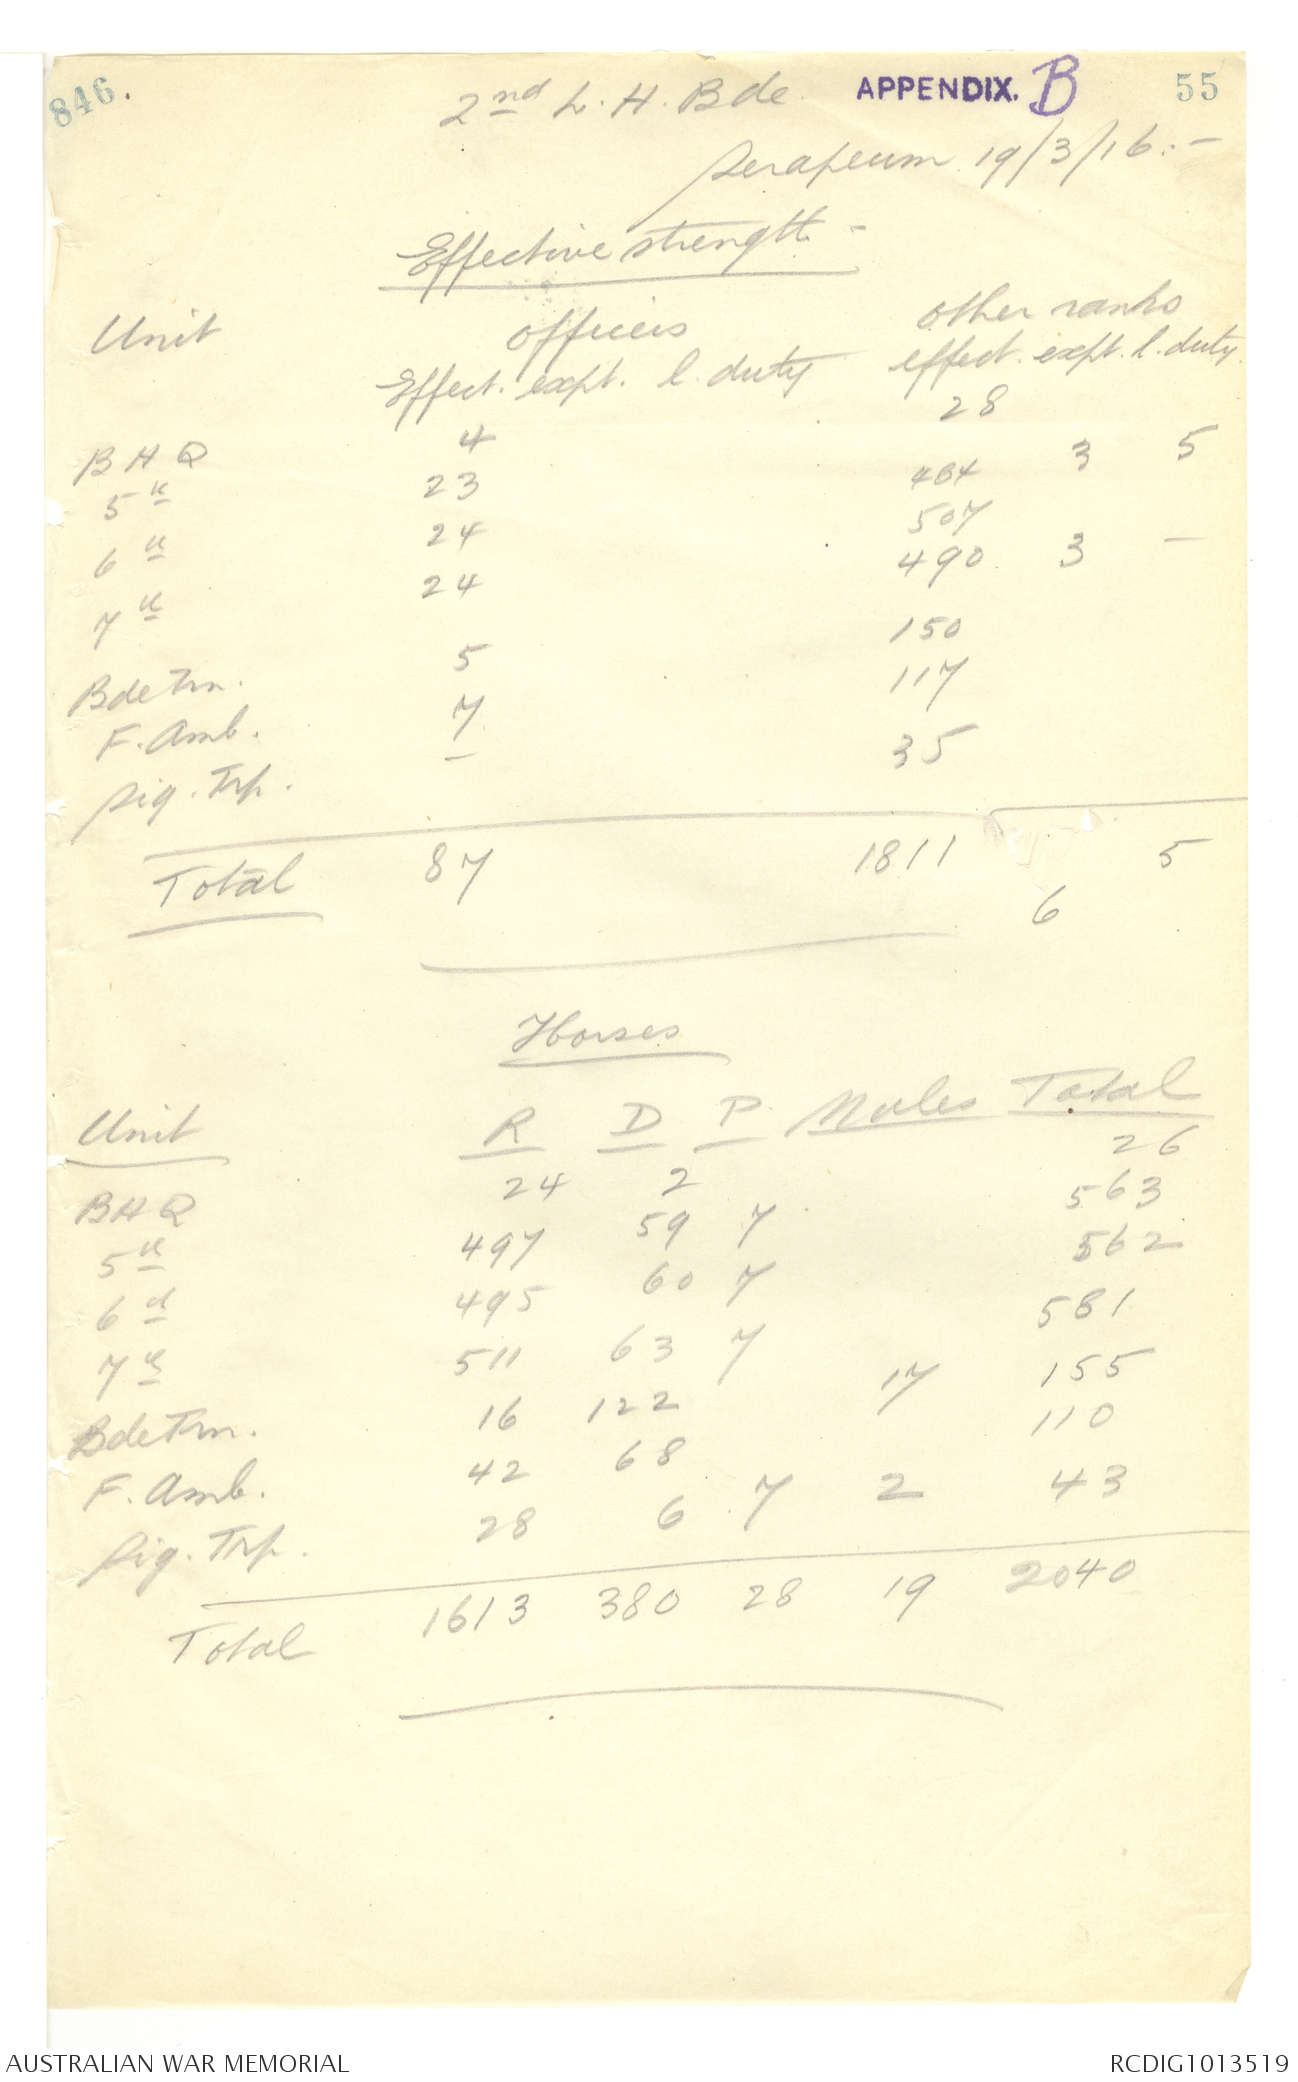 846.
2nd L. H. Bde. APPENDIX. B 55
Serapeum 19/3/16:-
Effective strength -
Unit officers other ranks
Effect. expt. l. duty effect. expt. l. duty.
BHQ 4 28
5th 23 484 3 5
6th 24 507
7th 24 490 3 -
Bde Trn. 5 150
F. Amb. 7 117
Sig. Trp. - 35
Total 87 1811 6 5
Horses
Unit R D P. Mules Total
BHQ 24 2 26
5th 497 59 7 563
6th 495 60 7 562
7th 511 63 7 581
Bde Trn. 16 122 17 155
F. Amb. 42 68 110
Sig. Trp. 28 6 7 2 43
Total 1613 380 28 19 2040
AUSTRALIAN WAR MEMORIAL RCDIG1013519